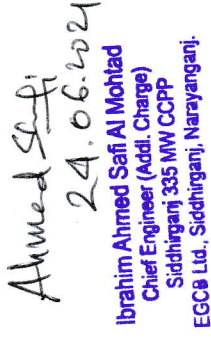 Ahmed Safi
24.06.2021
Ibrahim Ahmed Safi Al Mohtad
Chief Engineer (Addl. Charge)
Siddhirganj 335 MW CCPP
EGCB Ltd., Siddhirganj, Narayanganj.